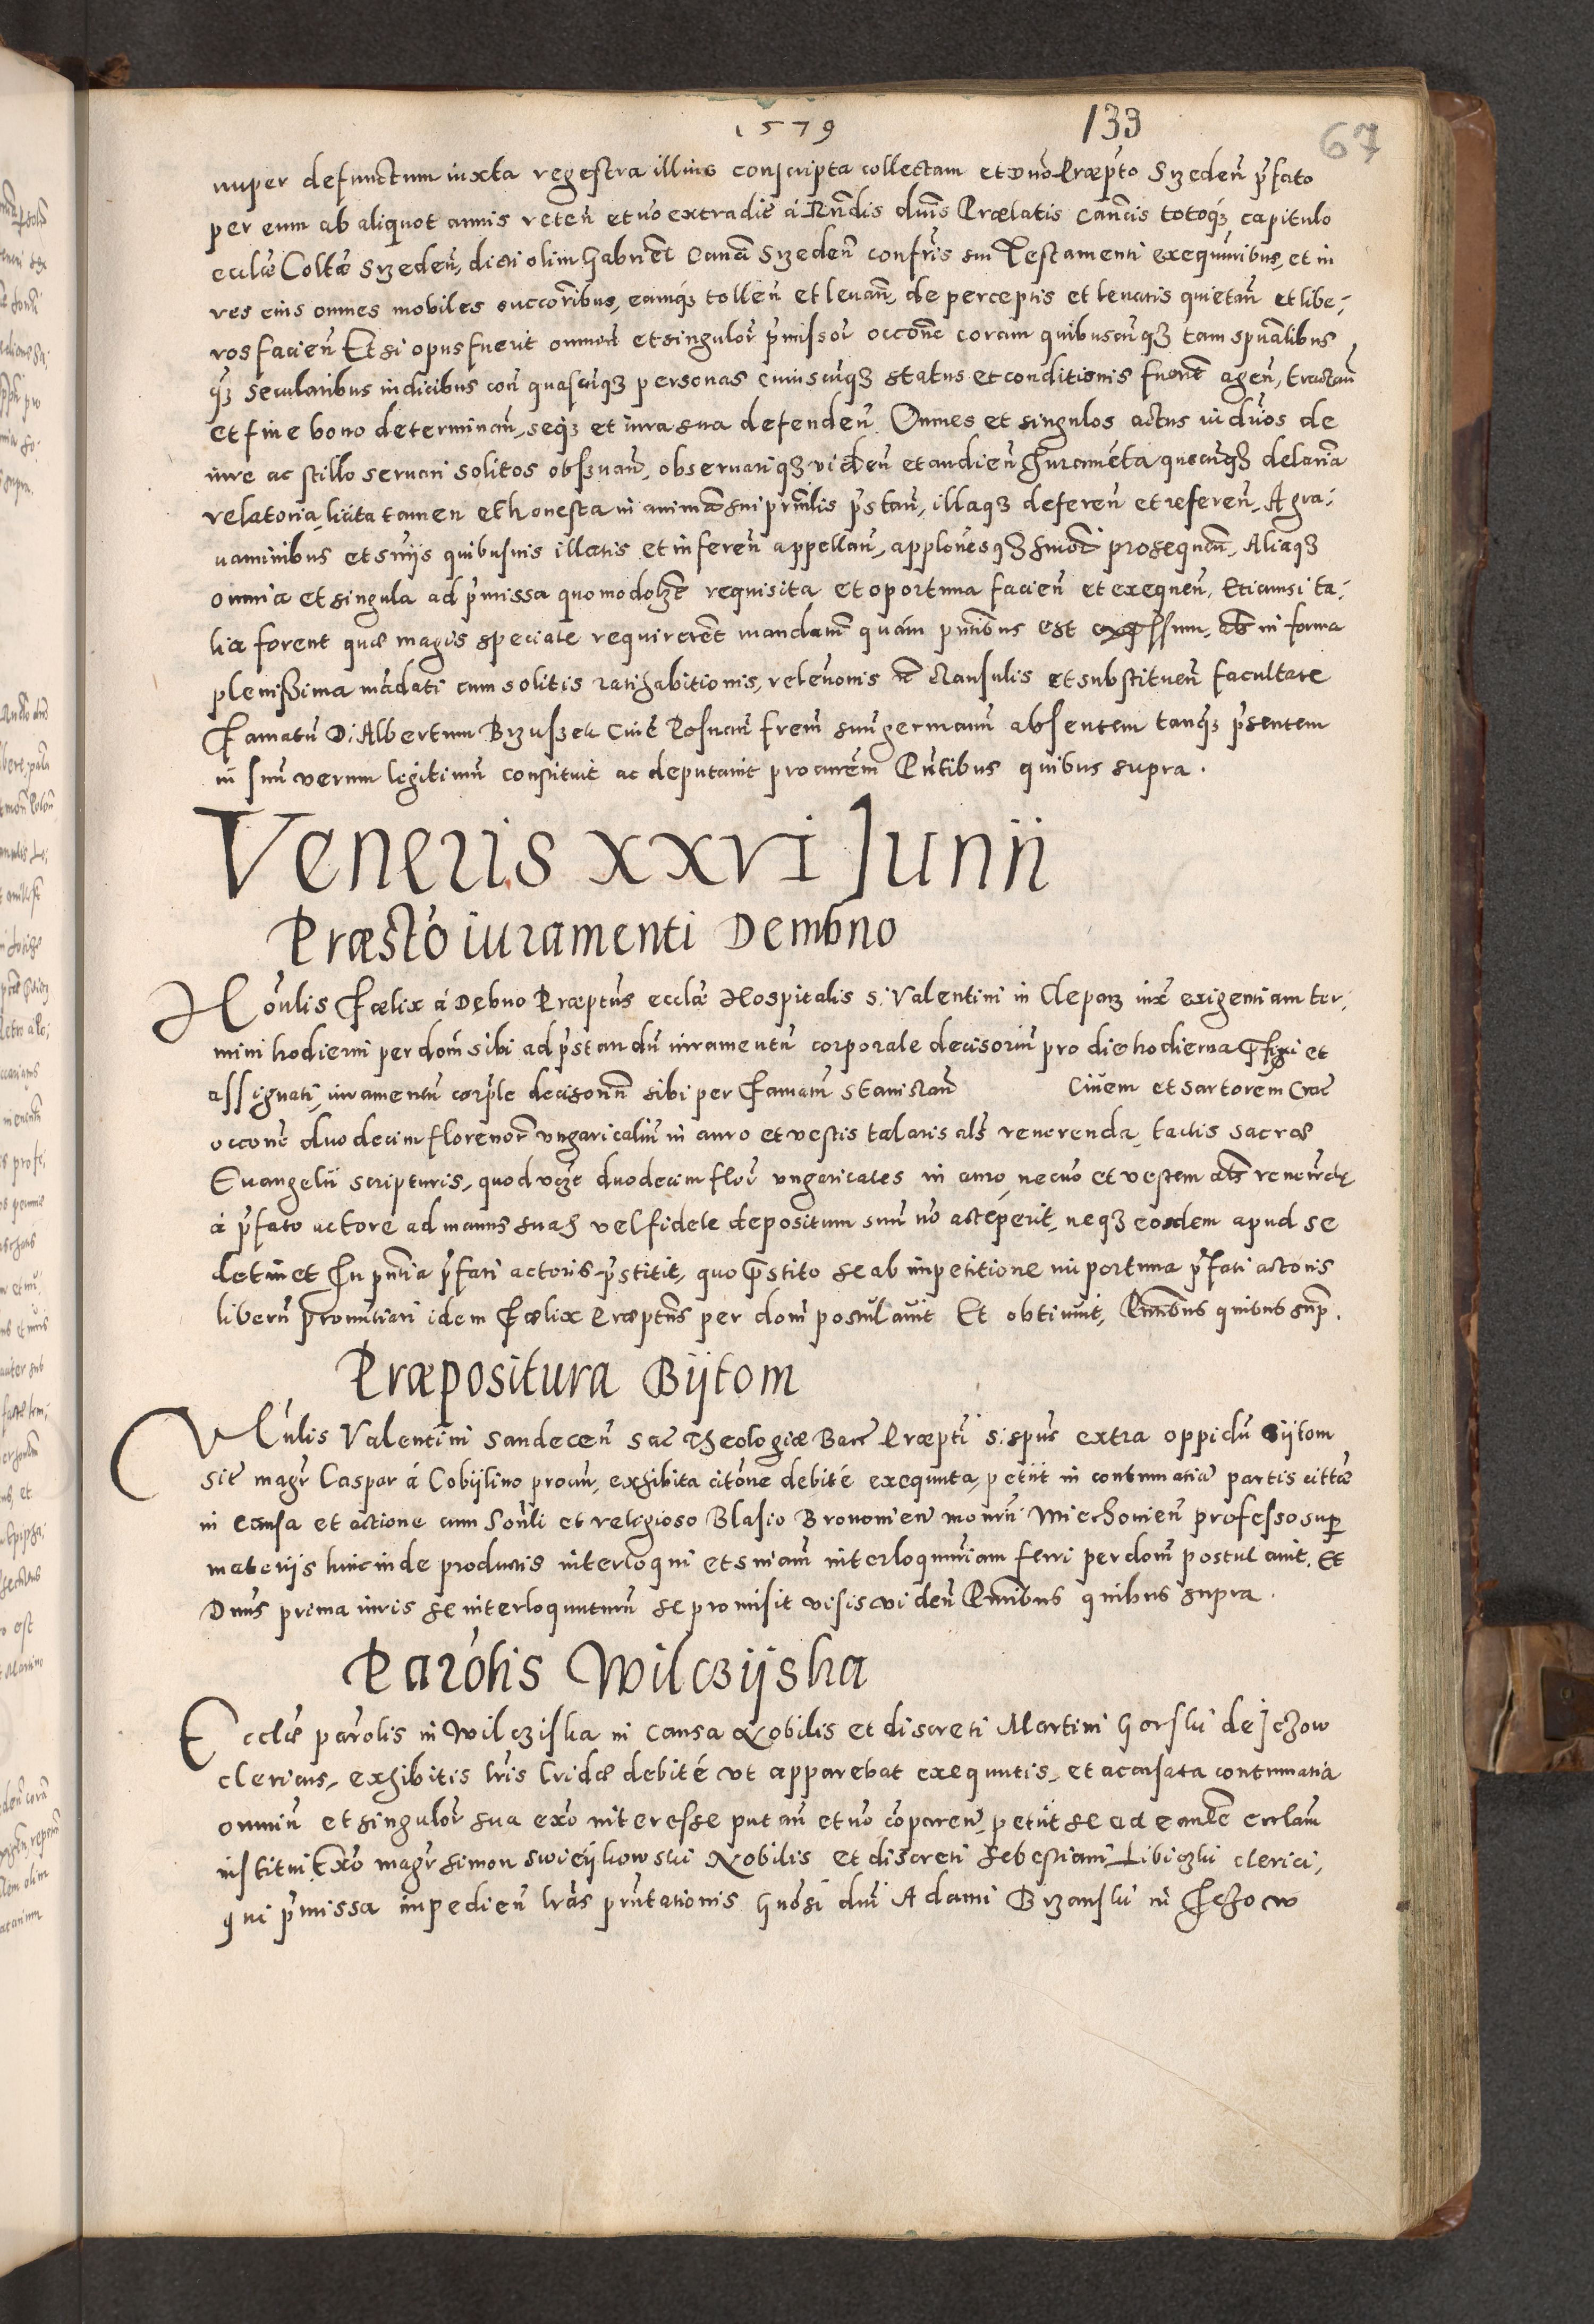 1579 133 67
nuper defunctum iuxta regestra illius conscripta collectam et dno Præpto Srzeden̄ p̄fato
per eum ab aliquot annis reten̄ et no extradit á Rn̄dis dn̄is Prælatis Canc̄is totoq̨ȝ capitulo
eccl̄æ Coll̄tæ Srzeden̄, dicti olim Gabriel̄ Canc̄i Srzeden̄ confr̄is sui Testamenti exequūribus, et in
res eius omnes mobiles succor̄ibus, eamq̨ȝ tollen̄ et levan̄, de perceptis et levatis quietan̄ et libe¸
ros facien̄ Et si opus fuerit omniū et singulor̄ p̄missor̄ occōne coram quibuscūqȝ tam spūalibus
q̨ȝ secularibus iudicibus con̄ quascūqȝ personas cuiuscūqȝ status et conditionis fuerīt agen̄, tractan̄
et fine bono determinan̄, seq̨ȝ et iura sua defenden̄. Omnes et singulos actus iudūos de
iure ac stillo servari solitos obsȝvan̄, observariqȝ viden̄ et audien̄ Iuramēta quæcūqȝ delatia
relatoria, licita tamen et honesta in animā sui prīnlis p̄stan̄, illaqȝ deferen̄ et referen̄, A gra¸
vaminibus et sn̄iis quibusvis illatis et inferen̄ appellan̄, applōnesqȝ hmōi prosequen̄, Aliaqȝ
omnia et singula ad p̄missa quomodolȝt requisita et oportuna facien̄ et exequen̄, Etiamsi ta¸
lia forent quæ magis speciale requirerēt mandatū quám pn̄tibus est exp̄ssum, als in forma
plenissima mādati cum solitis ratihabitionis, relevōnis &c clausulis et substituen̄ facultate
Famatū D: Albertum Brzuszek Civē Posnan̄ frem̄ suū germanū absentem tanq̨ȝ p̄sentem
in suū verum legitimū constituit ac deputavit procurēm Pn̄tibus quibus supra.
Veneris xxvi Junii
Præstō iuramenti Dembno
Honlis Fælix á Dębno Præptūs eccl̄æ Hospitalis S: Valentini in Cleparz iux̄ exigentiam ter¸
mini hodierni per dom̄ sibi ad p̄standū iuramentū corporale decisoriū pro die hodierna p̄fixi et
assignati, iuramentū corp̄le decisoriū sibi per Famatū Stanislaū Civem et sartorem Crac̄
occōne duodecim florenor̄ ungaricaliū in auro et vestis talaris als reverenda, tactis sacræ
Evangelii scripturis, quod vȝt duodecim flor̄ ungaricales in auro, necnō et vestem als reverendę
á p̄fato actore ad manus suas vel fidele depositum suū nō acceperit, neqȝ eosdem apud se
detinet In pn̄tia p̄fati actoris p̄stitit, quo p̄stito se ab impetitione importuna p̄fati actoris
liberū pronūtiari idem Fælix Præptūs per dom̄ postulavit Et obtinuit, Pn̄tibus quibus sup̄.
Præpositura Bijtom
Vēnlis Valentini Sandecen̄ Sac̄ Theologiæ Bacc̄ Præpti S: Spūs extra oppidū Bijtom
sit̄ magr̄ Caspar á Cobijlino procur̄, exhibita citōne debité exequuta, petiit in contumatiā partis cittæ
in causa et actione cum Honli et religioso Blasio Bronovien̄ monrii Miechovien̄ professo sup̄
materijs hincinde productis interloqui et sn̄iam interloqutoriam ferri per dom̄ postulavit. Et
Dn̄us prima iuris se interloquuturū se promisit visis viden̄ Pn̄tibus quibus supra.
Parōlis Wilczijska
Eccl̄æ parōlis in Wilcziska in causa Nobilis et discreti Martini Gorski de Jezow
clericus, exhibitis lr̄is cridæ debité ut apparebat exequutis, et accusata contumatia
omniū et singulor̄ sua exo interesse putan̄ et no cōparen̄, petiit se ad eandē eccl̄am
institui. Exō magr̄ Simon Swieijkowski Nobilis et discreti Sebestiani Libiczki clerici,
qui p̄missa impedien̄ lr̄as pn̄tationis Gnōsi dn̄i Adami Brzanski in Jezow